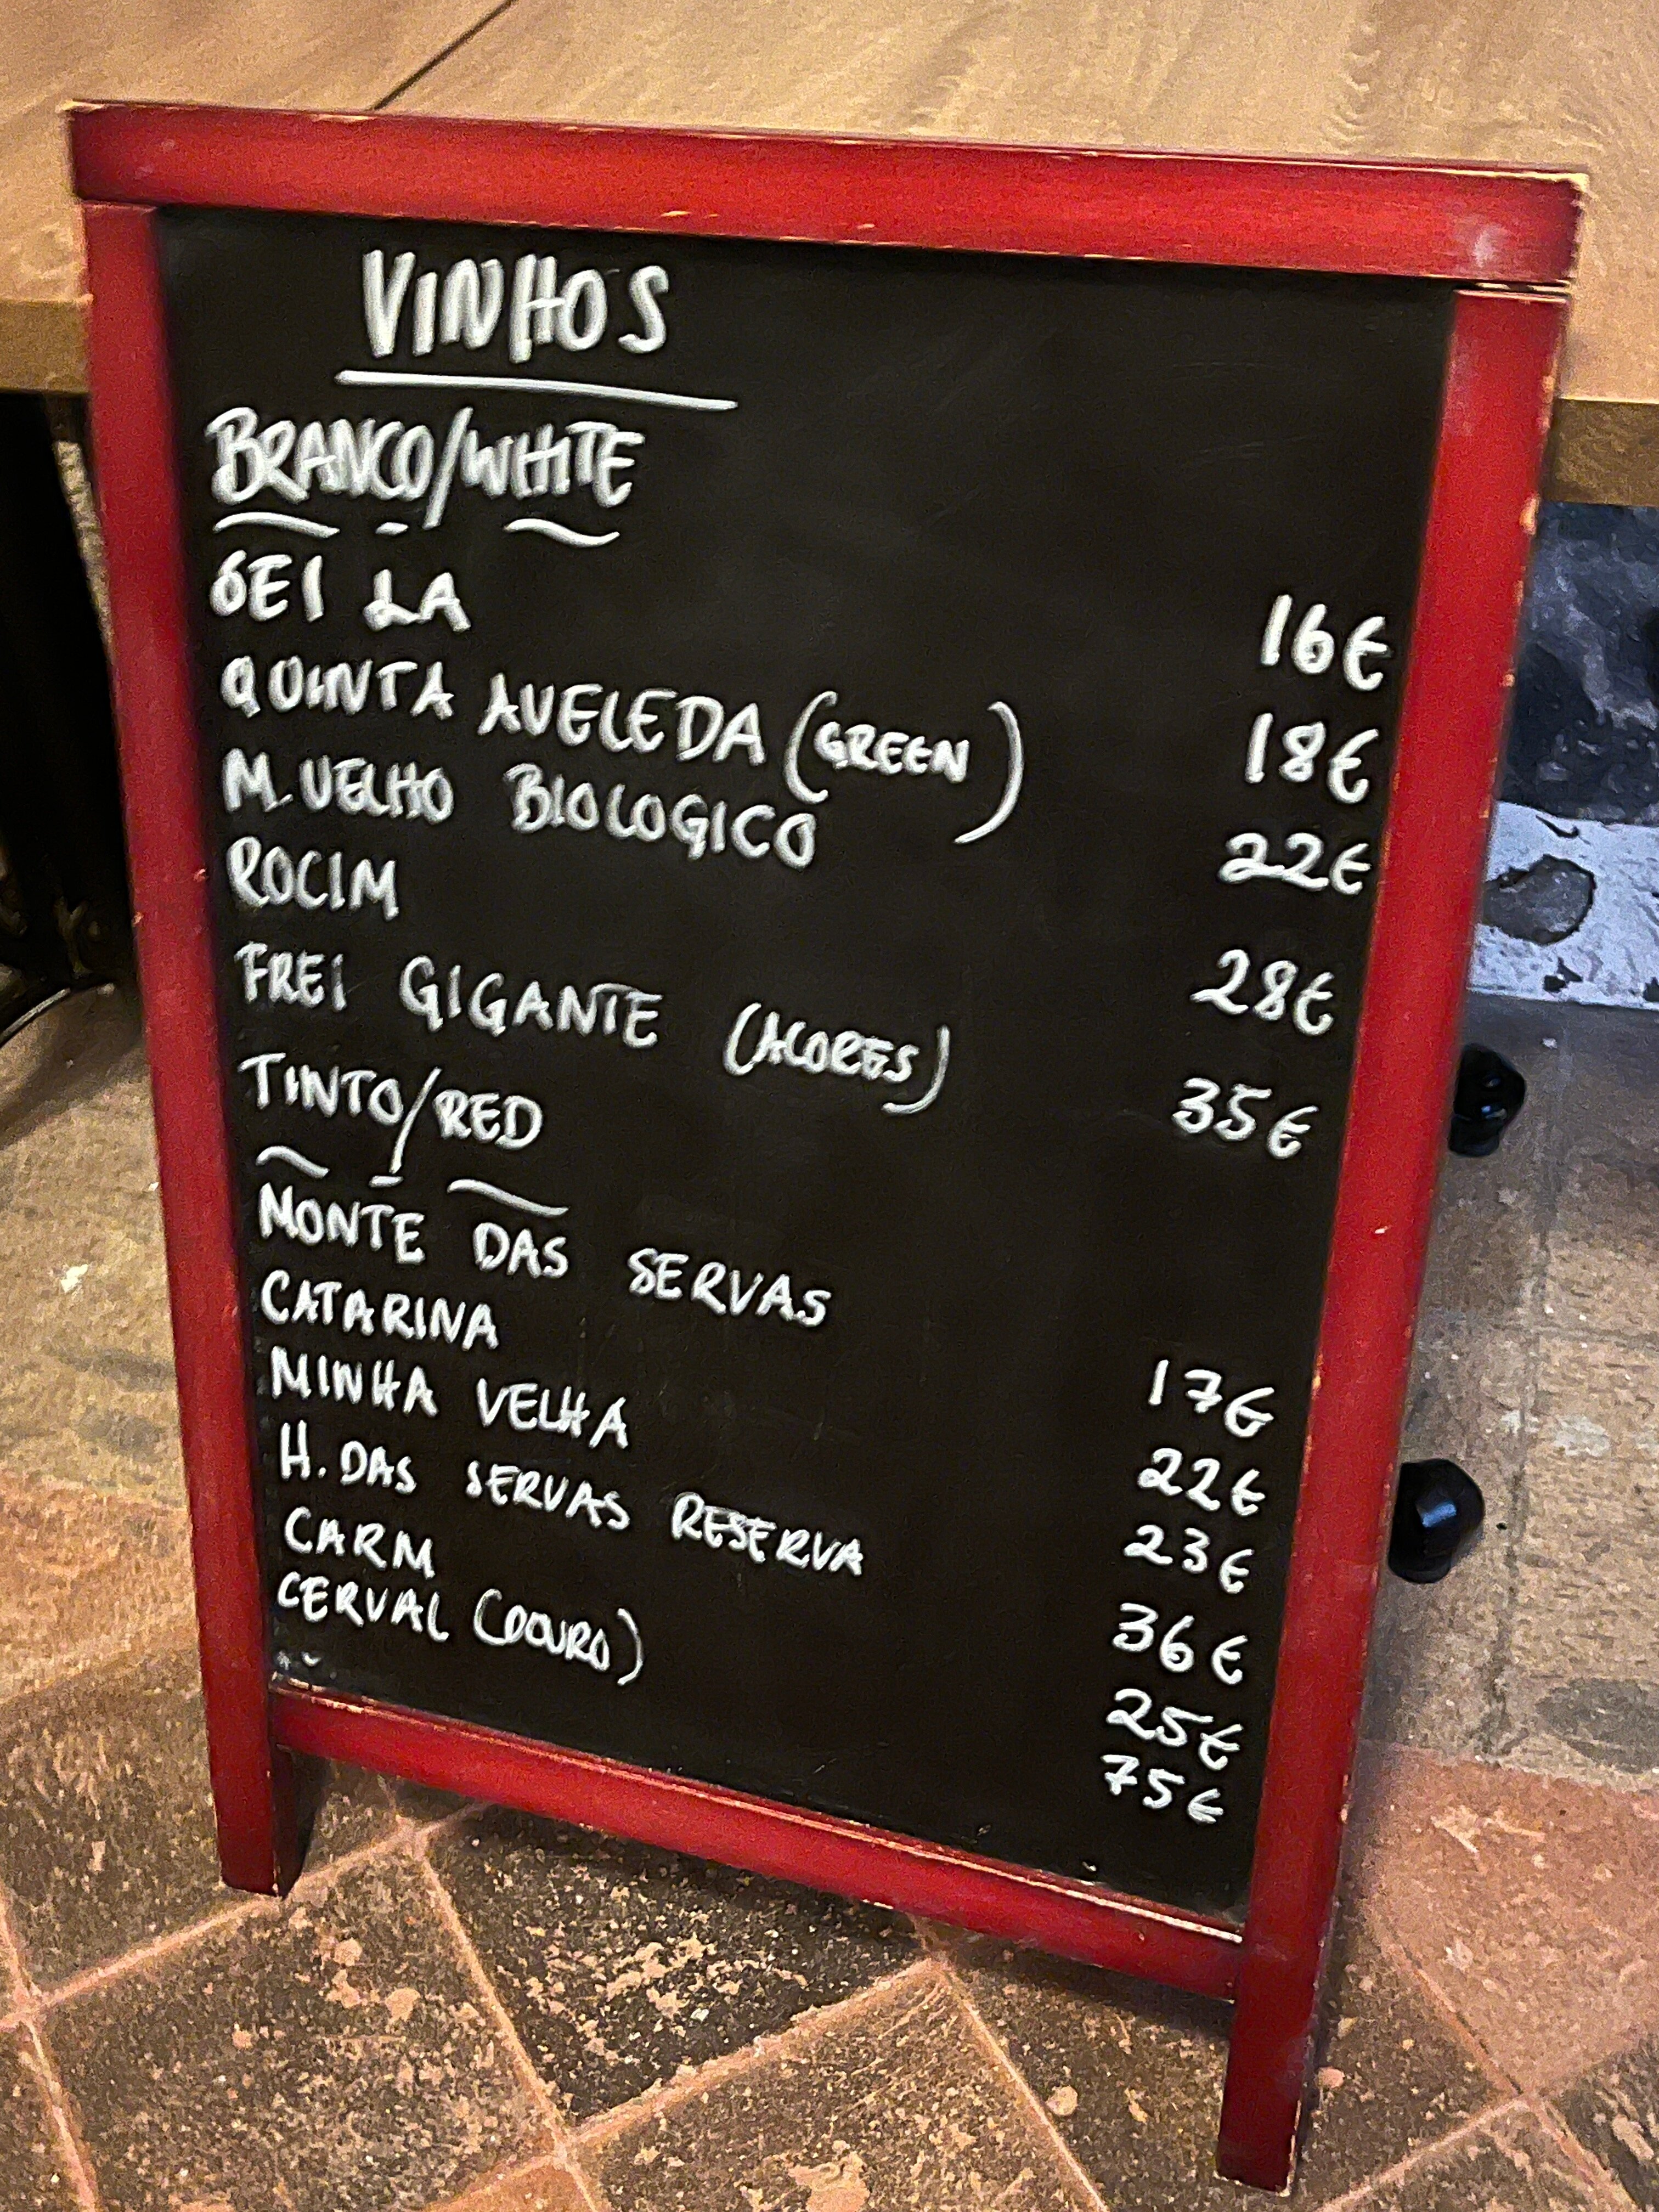 VINHOS
BRANCO/WHITE
SEI LA 16€
QUINTA AVELEDA (GREEN) 18€
M. VELHO BIOLOGICO 22€
ROCIM 28€
FREI GIGANTE (ACORES) 35€
TINTO/RED
MONTE DAS SERVAS 17€
CATARINA 22€
MINHA VELHA 23€
H. DAS SERVAS RESERVA 36€
CARM 25€
CERVAL (DOURO) 75€